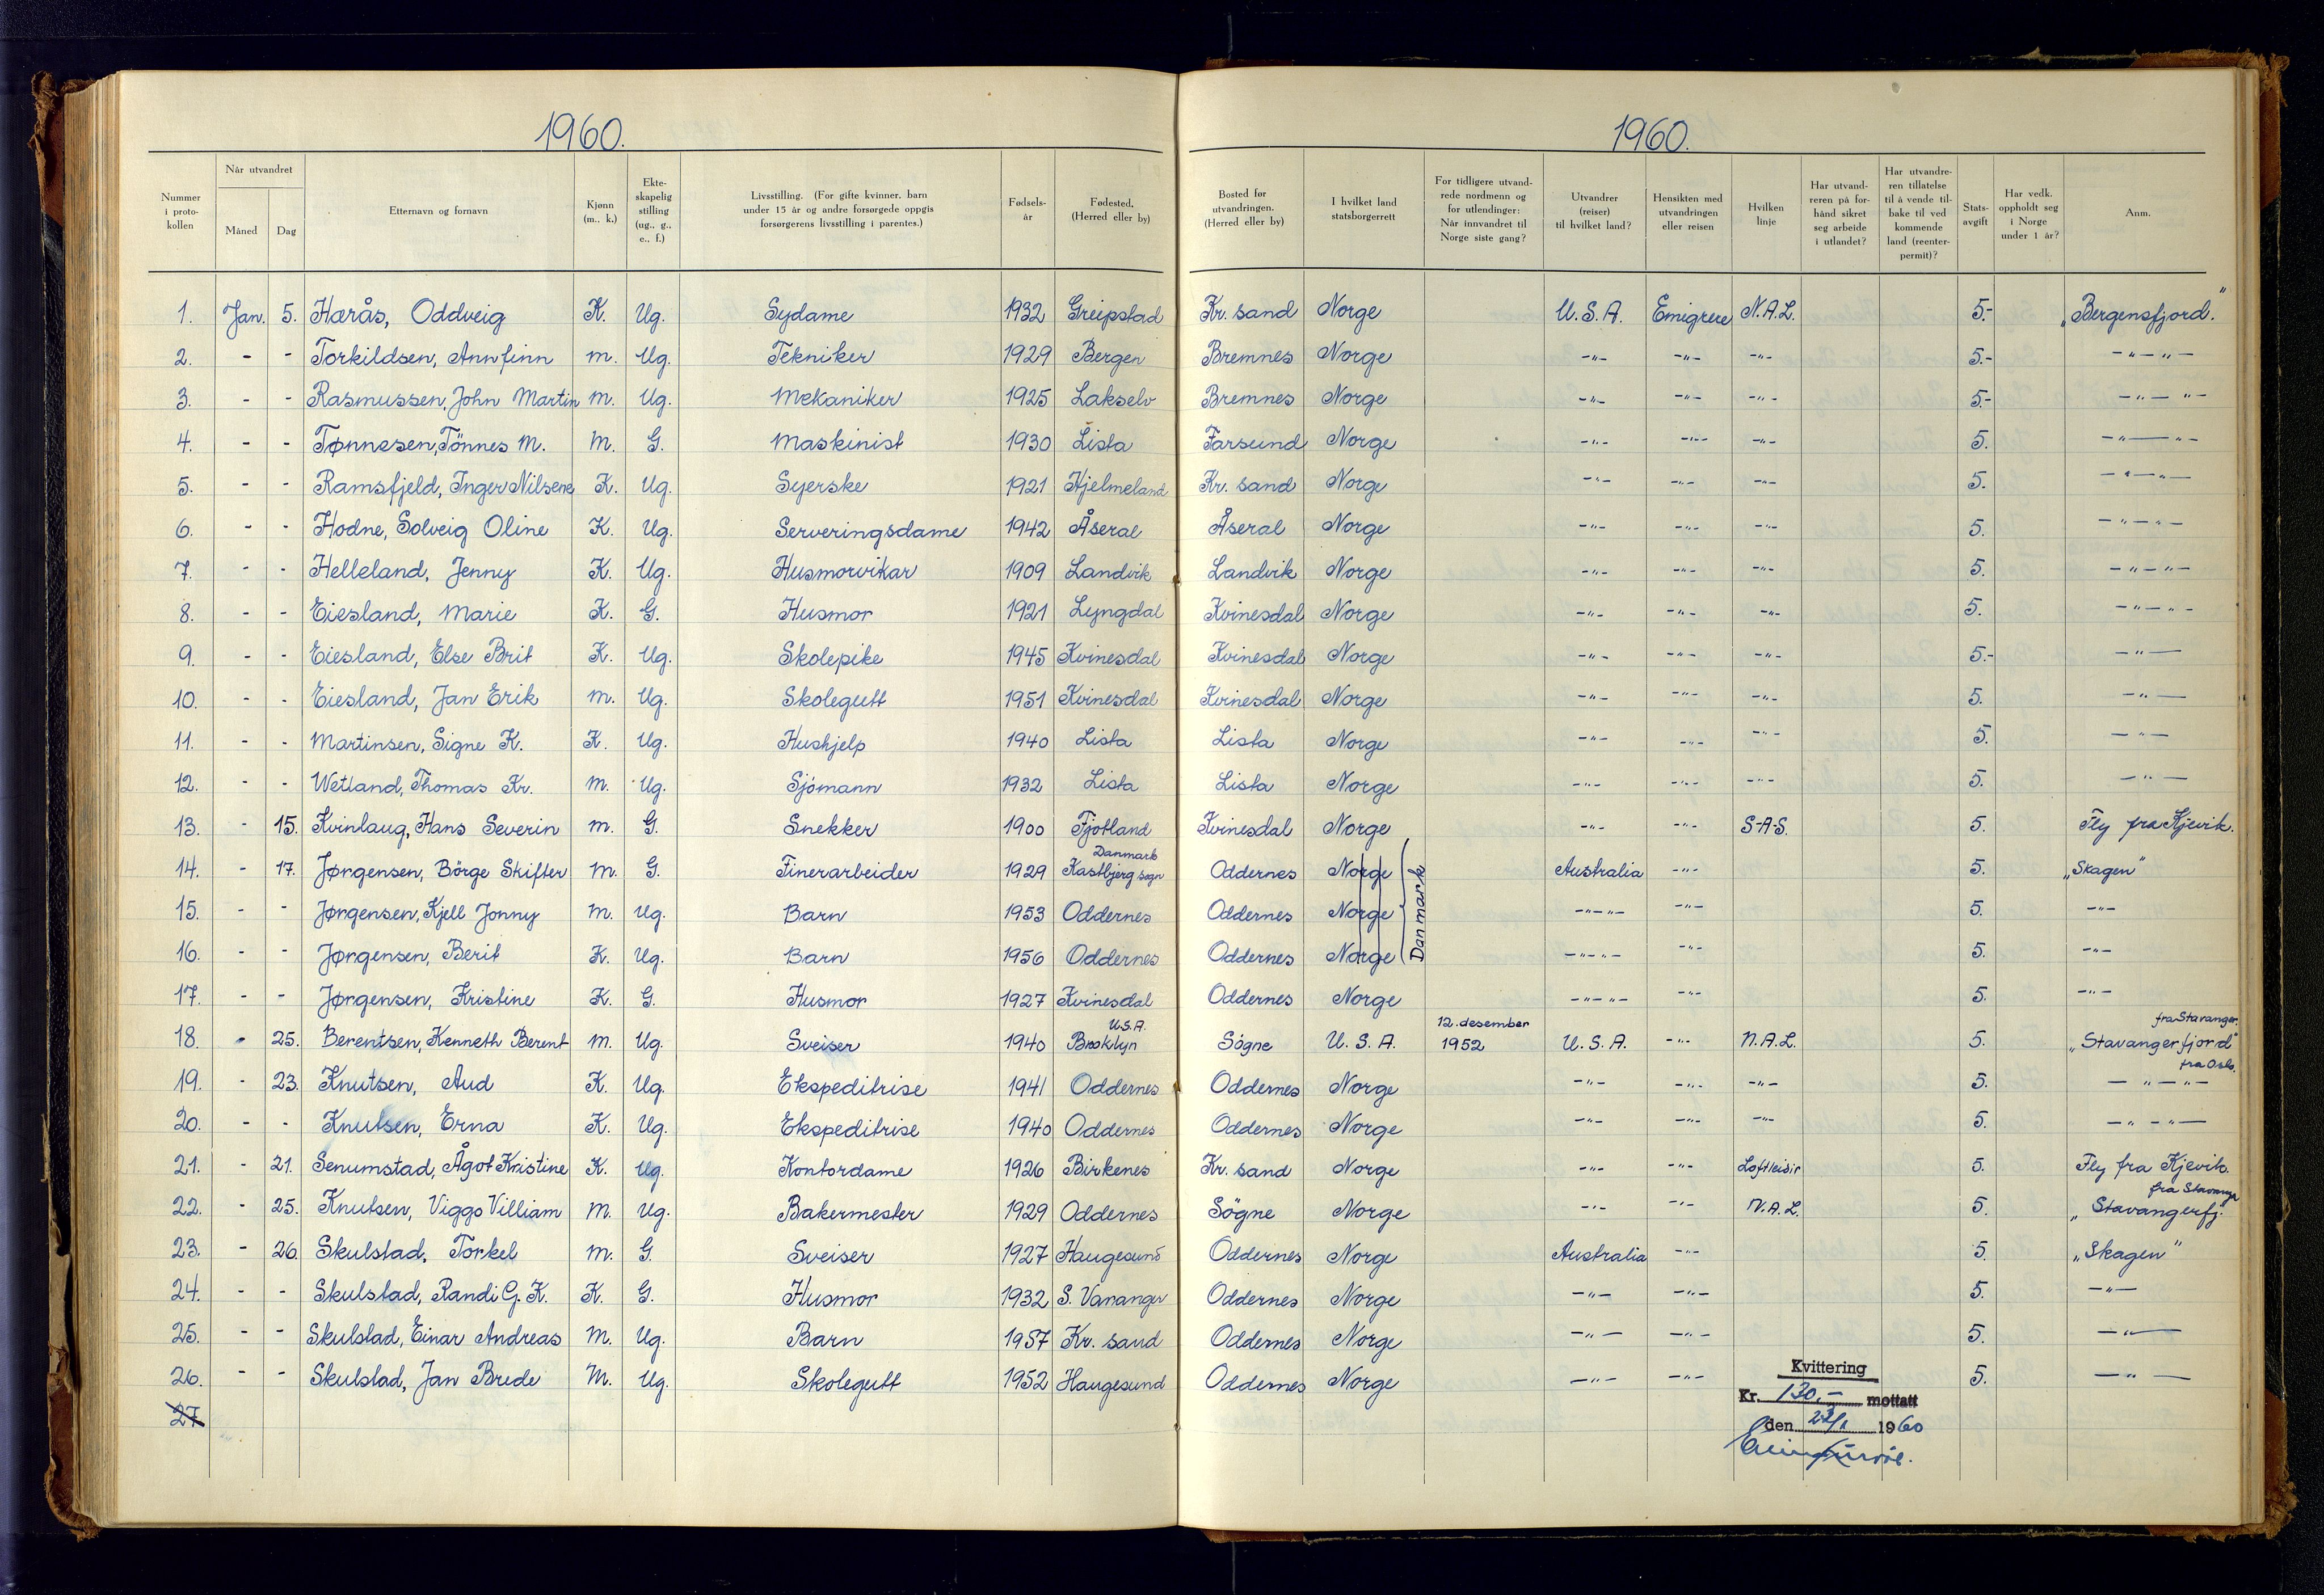 1960.
1960.
Nummer i proto-kollen | Når utvandret Måned | Dag | Etternavn og fornavn | Kjønn (m.. k.) | Ekte-skapelig stilling (ug.. g.. e.. f.) | Livsstilling. (For gifte kvinner. barn under 15 år og andre forsørgede oppgis forsørgerens livsstilling i parentes.) | Fødsels-år | Fødested. (Herred eller by) | Bosted før utvandringen. (Herred eller by) | I hvilket land statsborgerrett | For tidligere utvand-rede nordmenn og for utlendinger: Når innvandret til Norge siste gang? | Utvandrer (reiser) til hvilket land? | Hensikten med utvandringen eller reisen | Hvilken linje | Har utvand-reren på for-hånd sikret seg arbeide i utlandet? | Har utvandre-ren tillatelse til å vende til-bake til ved kommende land (reenter-permit)? | Stats-avgift | Har vedk. oppholdt seg i Norge under 1 år? | Anm.
1. Jan. 5. Hærås, Oddveig K. Ug. Sydame 1932 Greipstad Kr. sand Norge U.S.A. Emigrere N.A.L. 5.- „Bergensfjord."
2. - - Torkildsen, Annfinn m. Ug. Tekniker 1929 Bergen Bremnes Norge -"- -"- -"- 5.- -"-"-
3. - - Rasmussen, John Martin m. Ug. Mekaniker 1925 Lakselv Bremnes Norge -"- -"- -"- 5.- -"-"-
4. - - Tønnesen, Tönnes M. M. G. Maskinist 1930 Lista Farsund Norge -"- -"- -"- 5. -"-"-
5. - - Ramsfjeld, Inger Nilsene K. Ug. Syerske 1921 Hjelmeland Kr. sand Norge -"- -"- -"- 5. -"-"-
6. - - Hodne, Solveig Oline K. Ug. Serveringsdame 1942 Åseral Åseral Norge -"- -"- -"- 5. -"-"-
7. - - Helleland, Jenny K. Ug. Husmorvikar 1909 Landvik Landvik Norge -"- -"- -"- 5. -"-"-
8. - - Eiesland, Marie K. G. Husmor 1921 Lyngdal Kvinesdal Norge -"- -"- -"- 5. -"-"-
9. - - Eiesland, Else Brit K. Ug. Skolepike 1945 Kvinesdal Kvinesdal Norge -"- -"- -"- 5.- -"-
10. - - Eiesland, Jan Erik m. Ug. Skolegutt 1951 Kvinesdal Kvinesdal Norge -"- -"- -"- 5. -"-
11. - - Martinsen, Signe K. K. Ug. Hushjelp 1940 Lista Lista Norge -"- -"- -"- 5. -"-
12. - - Wetland, Thomas Kr. m. Ug. Sjömann 1932 Lista Lista Norge -"- -"- -"- 5. -"-
13. - 15. Kvinlaug, Hans Severin m. G. Snekker 1900 Fjotland Kvinesdal Norge -"- -"- S-A-S. 5. Fly fra Kjevik.
14. - 17. Jørgensen, Börge Skifter M. G. Finerarbeider 1929 Kastbjerg sogn Danmark Oddernes Norge Danmark Australia -"- 5. „Skagen"
15. - - Jørgensen, Kjell Jonny M. Ug. Barn 1953 Oddernes Oddernes Norge -"-"- -"- 5. -"-
16. - - Jørgensen, Berit K. Ug. Barn 1956 Oddernes Oddernes Norge -"-"- -"- 5. -"-
17. - - Jørgensen, Kristine K. G. Husmor 1927 Kvinesdal Oddernes Norge -"-"- -"- 5. -"-
18. - 25. Berentsen, Kenneth Berent M. Ug. Sveiser 1940 Brooklyn U.S.A. Søgne U.S.A. 12. desember 1952 U.S.A. -"- N.A.L. 5. „Stavangerfjord" fra Stavanger.
19. - 23. Knutsen, Aud K. Ug. Ekspeditrise 1941 Oddernes Oddernes Norge -"- -"- -"- 5. -"-"- fra Oslo.
20. - - Knutsen, Erna K. Ug. Ekspeditrise 1940 Oddernes Oddernes Norge -"- -"- -"- 5. -"-"-
21. - 21. Senumstad, Ågot Kristine K. Ug. Kontordame 1926 Birkenes Kr. sand Norge -"- -"- Loftleisir 5. Fly fra Kjevik.
22. - 25. Knutsen, Viggo Villiam M. Ug. Bakermester 1929 Oddernes Søgne Norge -"- -"- N.A.L. 5. „Stavangerfj." fra Stavanger
23. - 26. Skulstad, Torkel M. G. Sveiser 1927 Haugesund Oddernes Norge Australia -"- 5. „Skagen"
24. - - Skulstad, Randi G. K. K. G. Husmor 1932 S. Varanger Oddernes Norge -"- -"- 5. -"-
25. - - Skulstad, Einar Andreas M. Ug. Barn 1957 Kr. sand Oddernes Norge -"- -"- 5. -"-
26. - - Skulstad, Jan Brede M. Ug. Skolegutt 1952 Haugesund Oddernes Norge -"- -"- 5. -"-
27
Kvittering
Kr. 130,- mottatt
den 1960